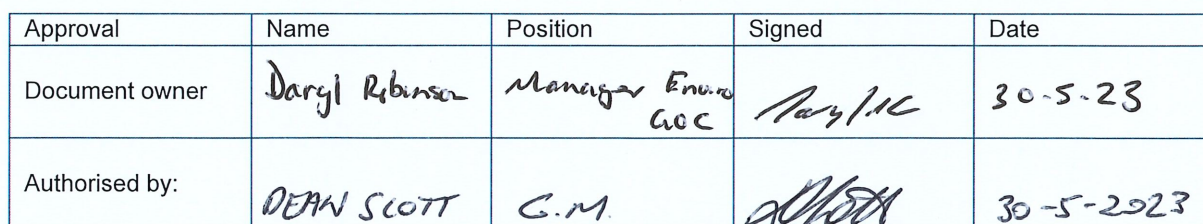 Approval Name Position Signed Date
Document owner Daryl Robinson Manager Enviro 30-5-23
GOC
Authorised by: DEAN SCOTT G.M. 30-5-2023